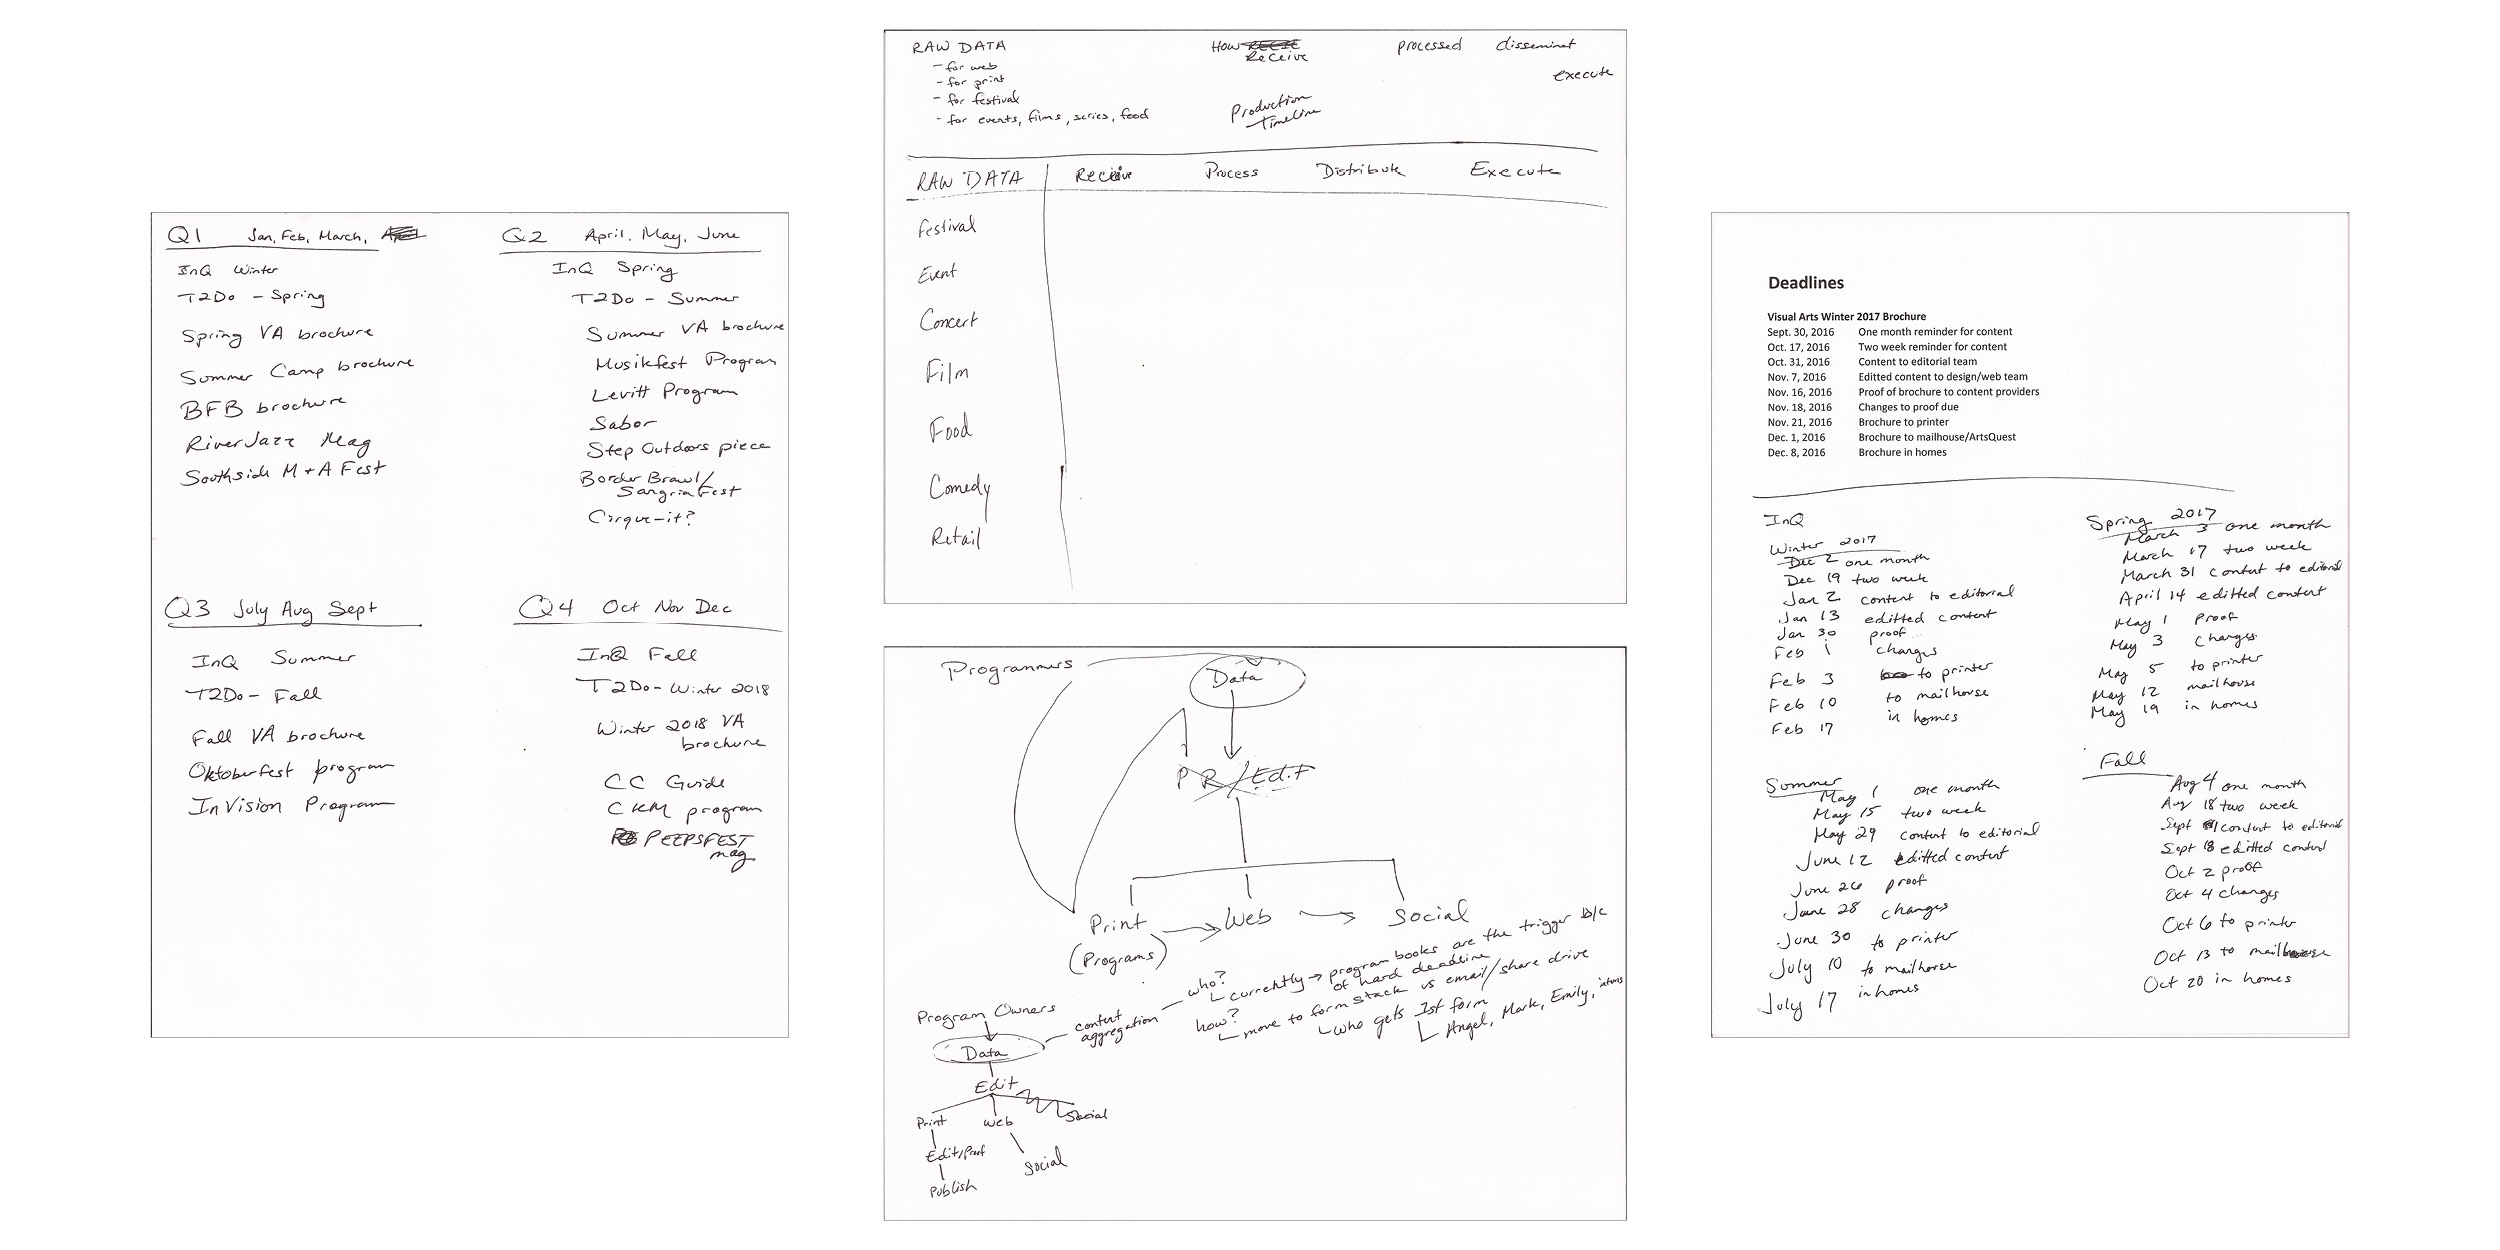 Q1 Jan, Feb, March,
InQ Winter
T2Do - Spring
Spring VA brochure
Summer Camp brochure
BFB brochure
RiverJazz Mag
Southside M + A Fest
Q2 April, May, June
InQ Spring
T2Do - Summer
Summer VA brochure
Musikfest Program
Levitt Program
Sabor
Step Outdoors piece
Border Brawl/
SangriaFest
Cirque-it?
Q3 July Aug Sept
InQ Summer
T2Do - Fall
Fall VA brochure
Oktoberfest program
InVision Program
Q4 Oct Nov Dec
InQ Fall
T2Do - Winter 2018
Winter 2018 VA
brochure
CC Guide
CKM program
PEEPSFEST
mag
RAW DATA
- for web
- for print
- for festival
- for events, films, series, food
HOW
Receive
Production
Timeline
processed disseminat
execute
RAW DATA Receive Process Distribute Execute
Festival
Event
Concert
Film
Food
Comedy
Retail
Programmers
Data
PR/Edit
Print Web Social
(Programs)
who?
currently → program books are the trigger b/c
of hard deadline
how?
move to formstack vs email/share drive
who gets 1st form
Angel, Mark, Emily,
content
aggregation
Program Owners
Data
Edit
Print Web Social
Edit/Proof
Social
Publish
Deadlines
Visual Arts Winter 2017 Brochure
Sept. 30, 2016 One month reminder for content
Oct. 17, 2016 Two week reminder for content
Oct. 31, 2016 Content to editorial team
Nov. 7, 2016 Editted content to design/web team
Nov. 16, 2016 Proof of brochure to content providers
Nov. 18, 2016 Changes to proof due
Nov. 21, 2016 Brochure to printer
Dec. 1, 2016 Brochure to mailhouse/ArtsQuest
Dec. 8, 2016 Brochure in homes
InQ
Winter 2017
Dec 2 one month
Dec 19 two week
Jan 2 content to editorial
Jan 13 editted content
Jan 30 proof
Feb 1 changes
Feb 3 to printer
Feb 10 to mailhouse
Feb 17 in homes
Spring 2017
March 3 one month
March 17 two week
March 31 content to editorial
April 14 editted content
May 1 proof
May 3 changes
May 5 to printer
May 12 mailhouse
May 19 in homes
Summer
May 1 one month
May 15 two week
May 29 content to editorial
June 12 editted content
June 26 proof
June 28 changes
June 30 to printer
July 10 to mailhouse
July 17 in homes
Fall
Aug 4 one month
Aug 18 two week
Sept 1 content to editorial
Sept 18 editted content
Oct 2 proof
Oct 4 changes
Oct 6 to printer
Oct 13 to mailhouse
Oct 20 in homes